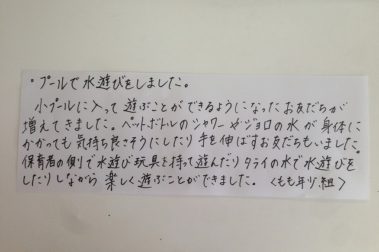 ・プールで水遊びをしました。
小プールに入って遊ぶことができるようになったお友だちが
増えてきました。ペットボトルのシャワーやジョロの水が身体に
かかっても気持ち良さそうにしたり手を伸ばすお友だちもいました。
保育者の側で水遊び玩具を持って遊んだりタライの水で水遊びを
したりしながら楽しく遊ぶことができました。〈もも年少組〉